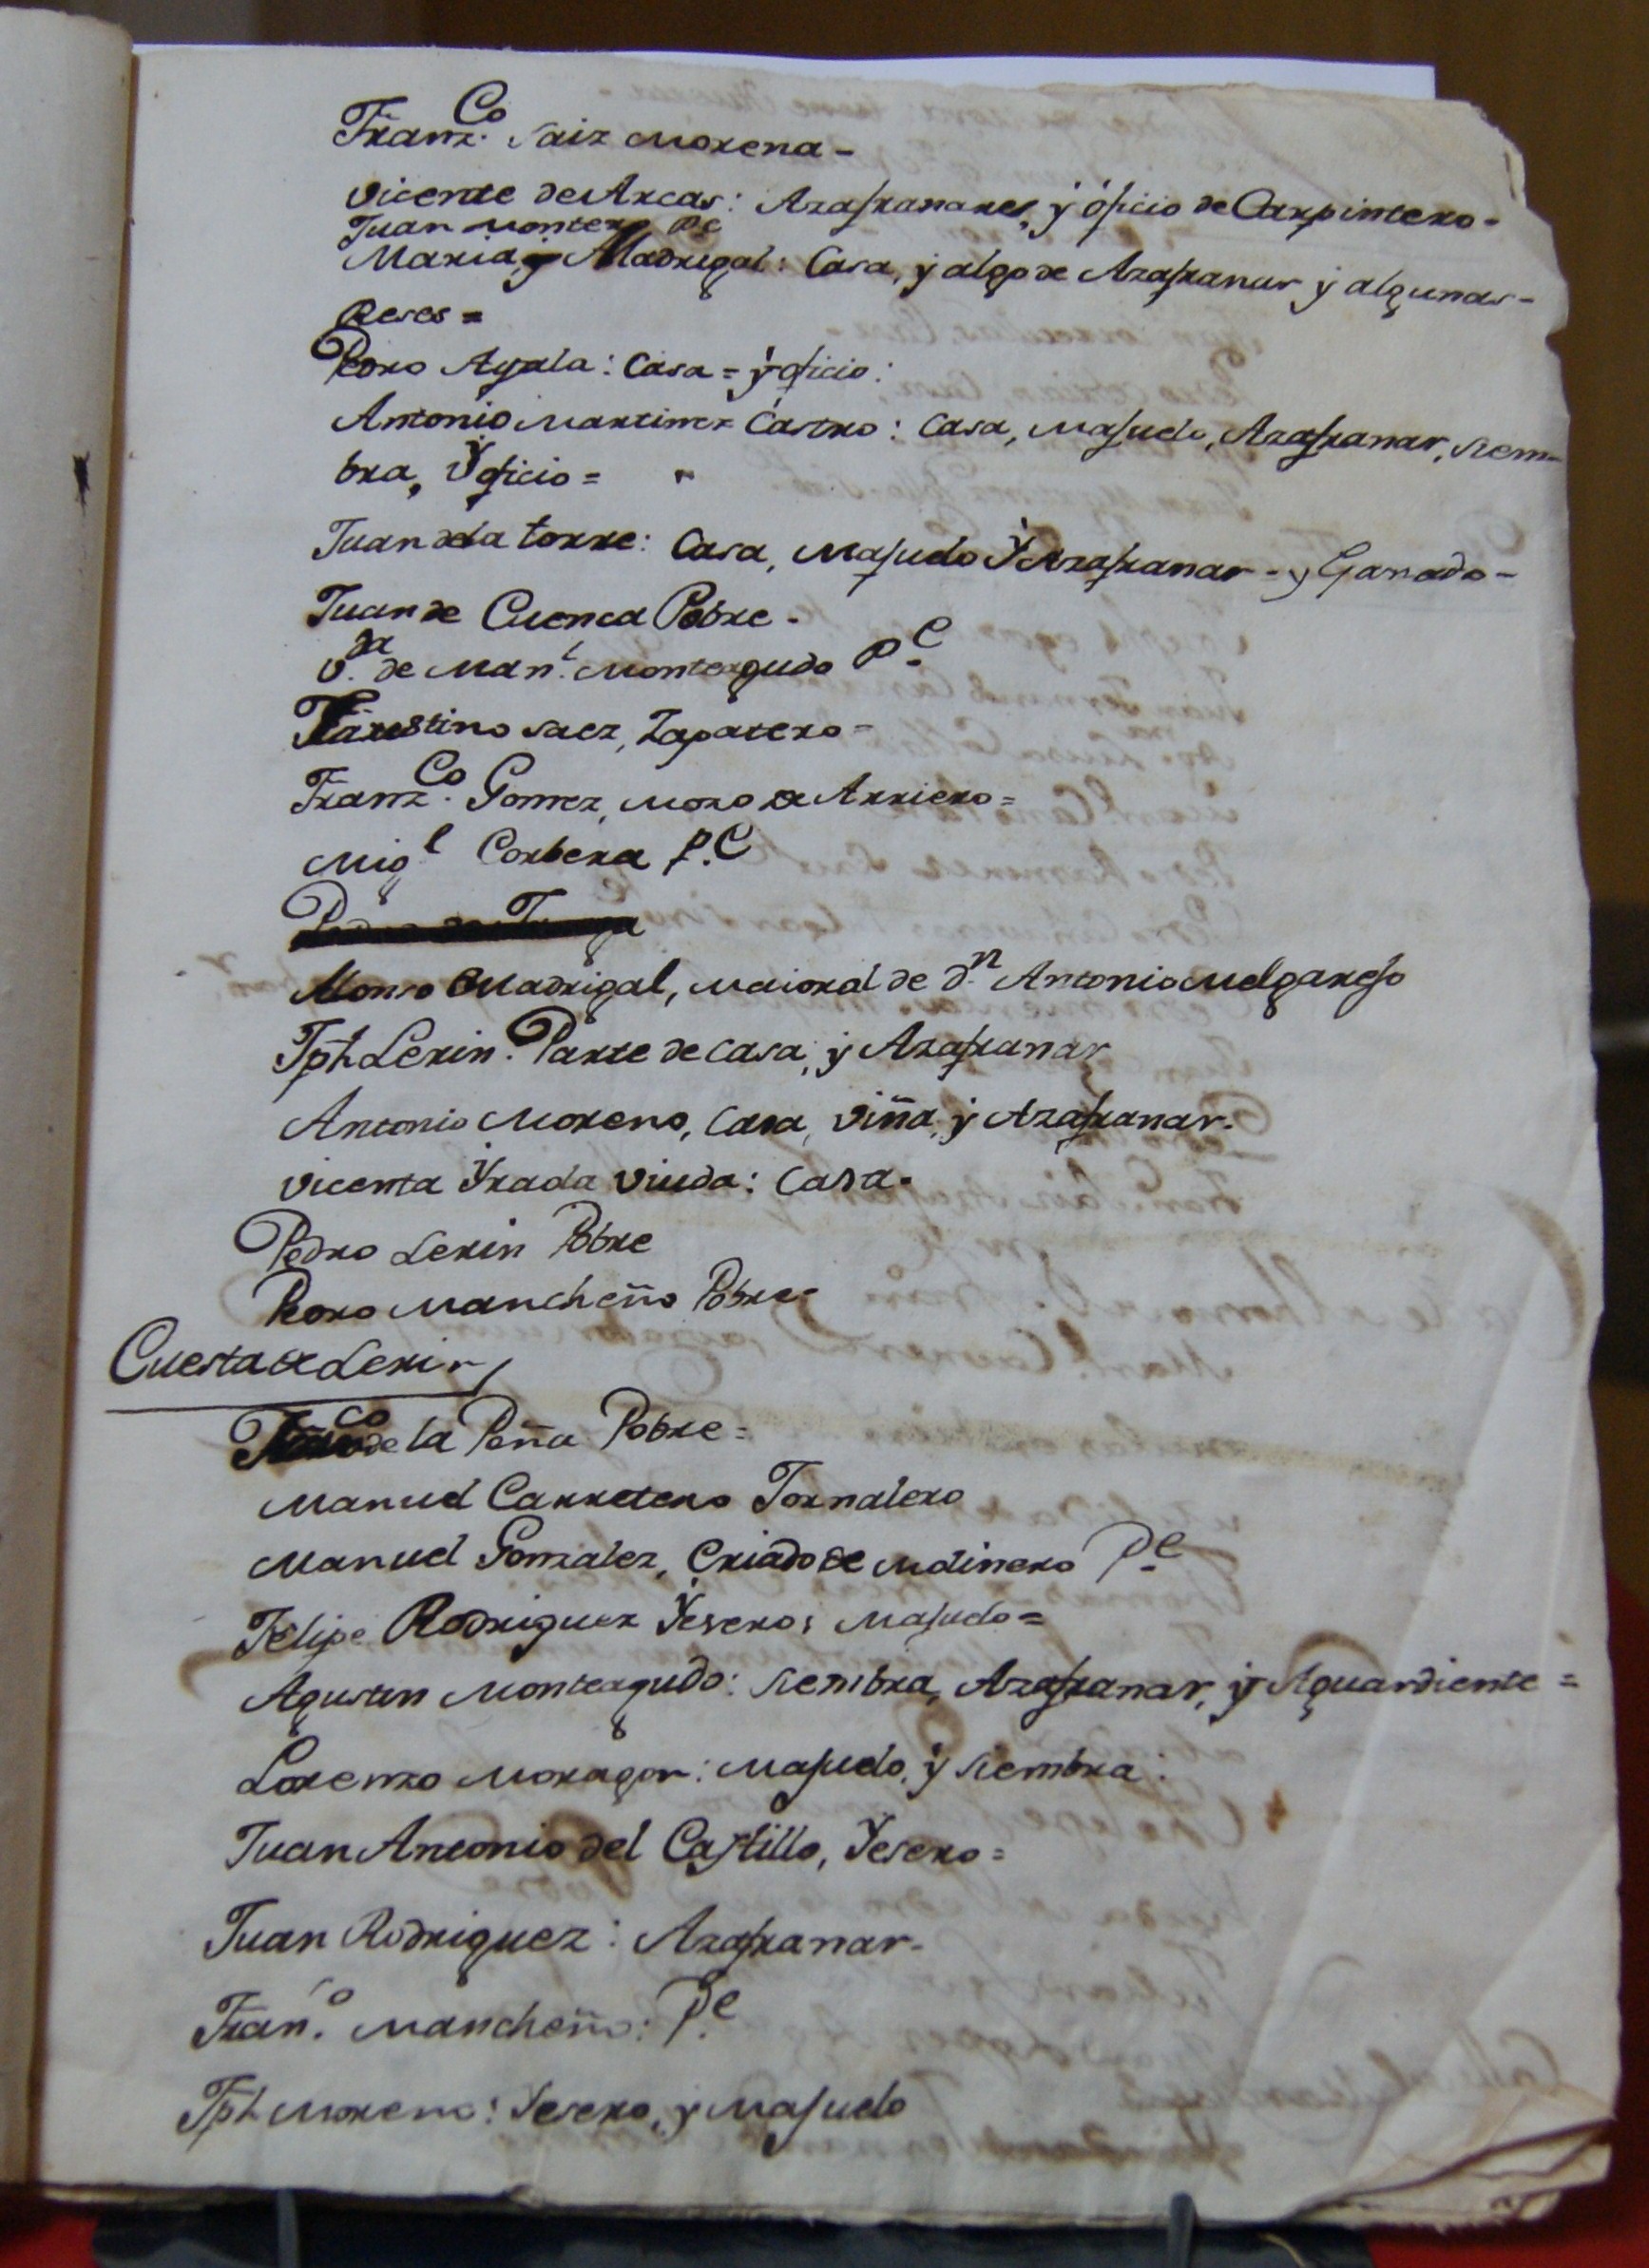 Franz.co Saiz Morena -
Vicente de Arcas: Azafranares, y oficio de Carpintero -
Juan Montero Pe
Maria y Madrigal: Casa, y algo de Azafranar y algunas -
Reses =
Pedro Ayala: Casa = y oficio:
Antonio Martinez Castro: Casa, Majuelo, Azafranar, siem-
bra, Y oficio =
Juan de la torre: Casa, Majuelo Y Azafranar - y Ganado -
Juan de Cuenca Pobre -
V.da de Man.l Monteagudo P.e
Faustino Saez, Zapatero -
Franz.co Gomez, Mozo de Arriero =
Mig.l Corbera P.e
Alonso Madrigal, Maioral de d.n Antonio Melgarejo
Jph Lerin: Parte de casa, y Azafranar
Antonio Moreno, Casa, viña, y Azafranar.
Vicenta Yrada viuda: Casa.
Pedro Lerin Pobre
Pedro Mancheño Pobre -
Cuesta de Lerin
Fran.co de la Peña Pobre =
Manuel Carretero Jornalero
Manuel Gonzalez, Criado de Molinero P.e
Felipe Rodriguez Yesero; Majuelo =
Agustin Monteagudo: siembra, Azafranar, y Aguardiente =
Lorenzo Moragon: Majuelo, y siembra:
Juan Antonio del Castillo, Yesero =
Juan Rodriguez: Azafranar -
Fran.co Mancheño: P.e
Jph Moreno: Yesero, y Majuelo